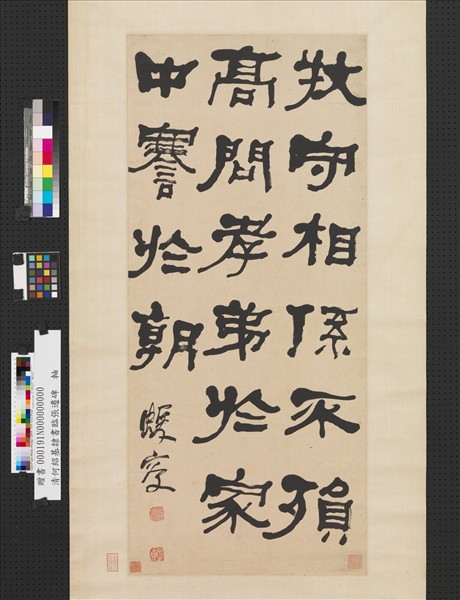 牧守相係不殞
高問孝弟於家
中謇於朝
蝯叟
贈書 000191N000000000
清何紹基隸書臨張遷碑 軸